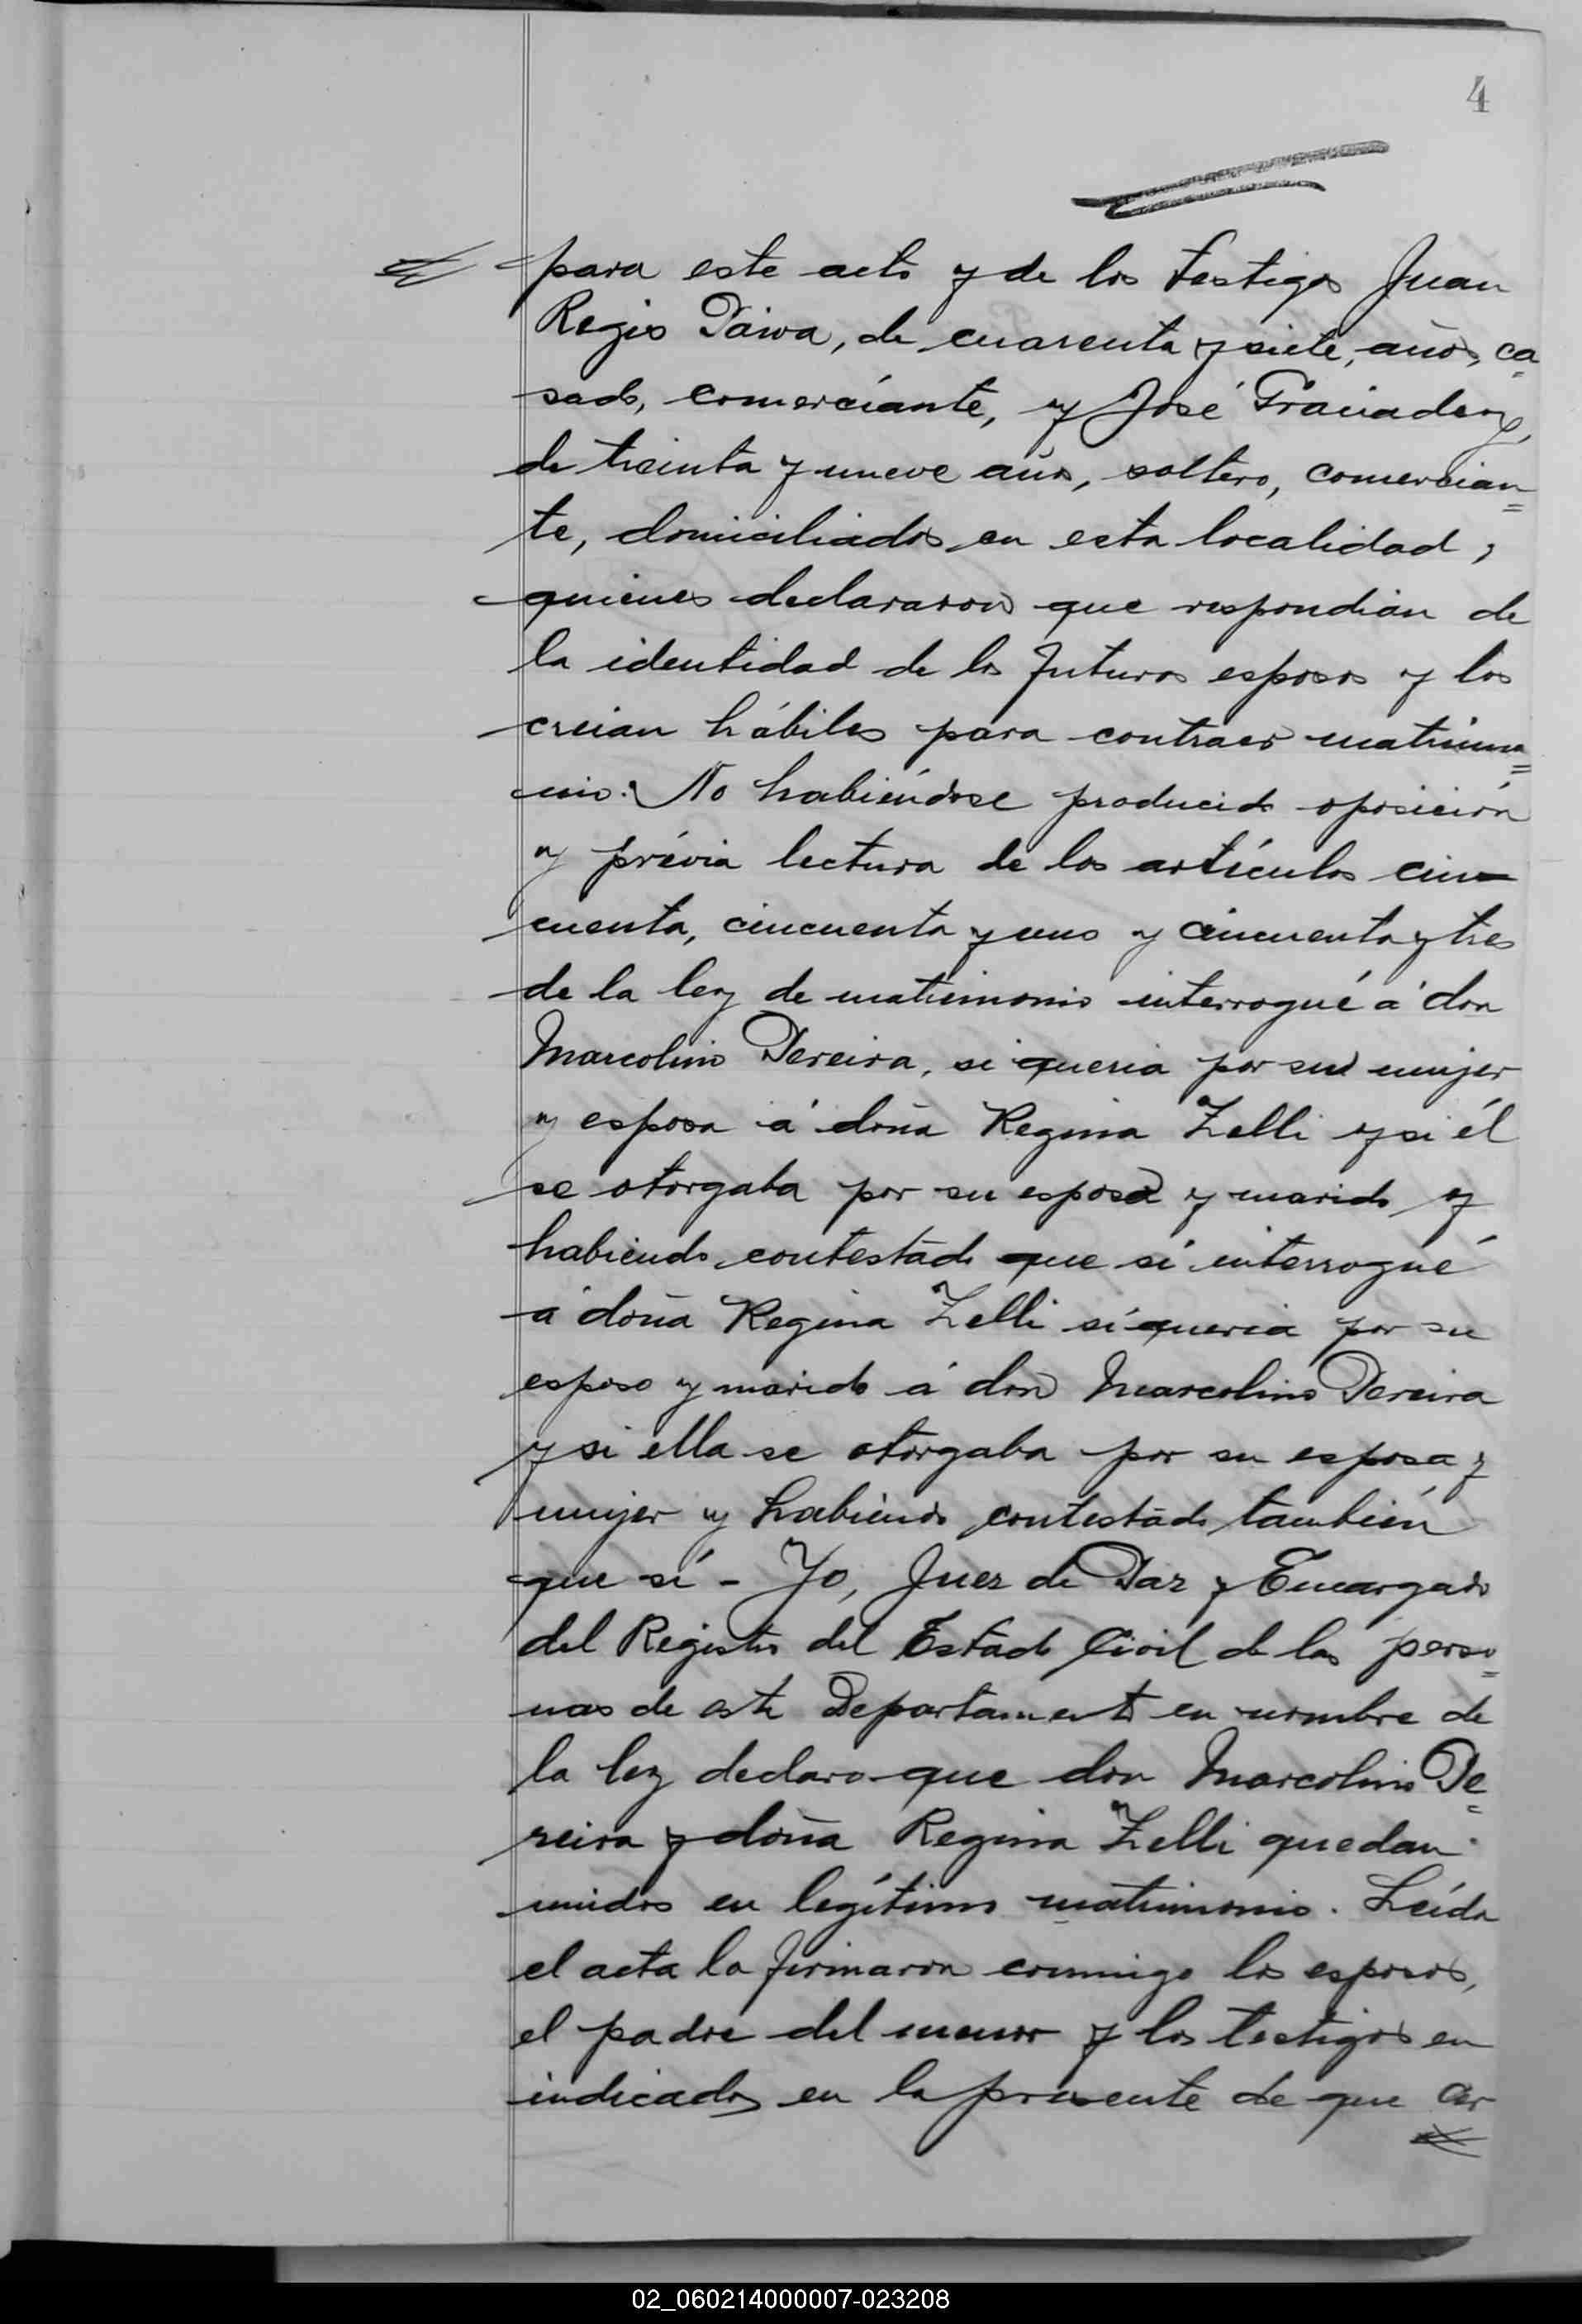 4
para este acto y de los testigos Juan
Regis Paiva, de cuarenta y siete, años, ca=
sado, comerciante, y José
de treinta y nueve años, soltero, comercian=
te, domiciliados en esta localidad,
quienes declararon que respondian de
la identidad de los futuros esposos y los
creian hábiles para contraer matrimo=
nio. No habiéndose producido oposición
y prévia lectura de los artículos cin-
cuenta, cincuenta y uno y cincuenta y tres
de la ley de matrimonio interrogué á don
Marcolino Pereira, si queria por su mujer
y esposa á doña Regina Zelli y si él
se otorgaba por su esposo y marido y
habiendo contestado que si interrogué
á doña Regina Zelli si queria por su
esposo y marido á don Marcolino Pereira
y si ella se otorgaba por su esposa y
mujer y habiendo contestado también
que sí - Yo, Juez de Paz y Encargado
del Registro del Estado Civil de las perso=
nas de este Departamento en nombre de
la ley declaro que don Marcolino Pe=
reira y doña Regina Zelli quedan
unidos en legítimo matrimonio. Leída
el acta la firmaron conmigo los esposos,
el padre del menor y los testigos en
indicados en la presente de que cer
02_060214000007-023208